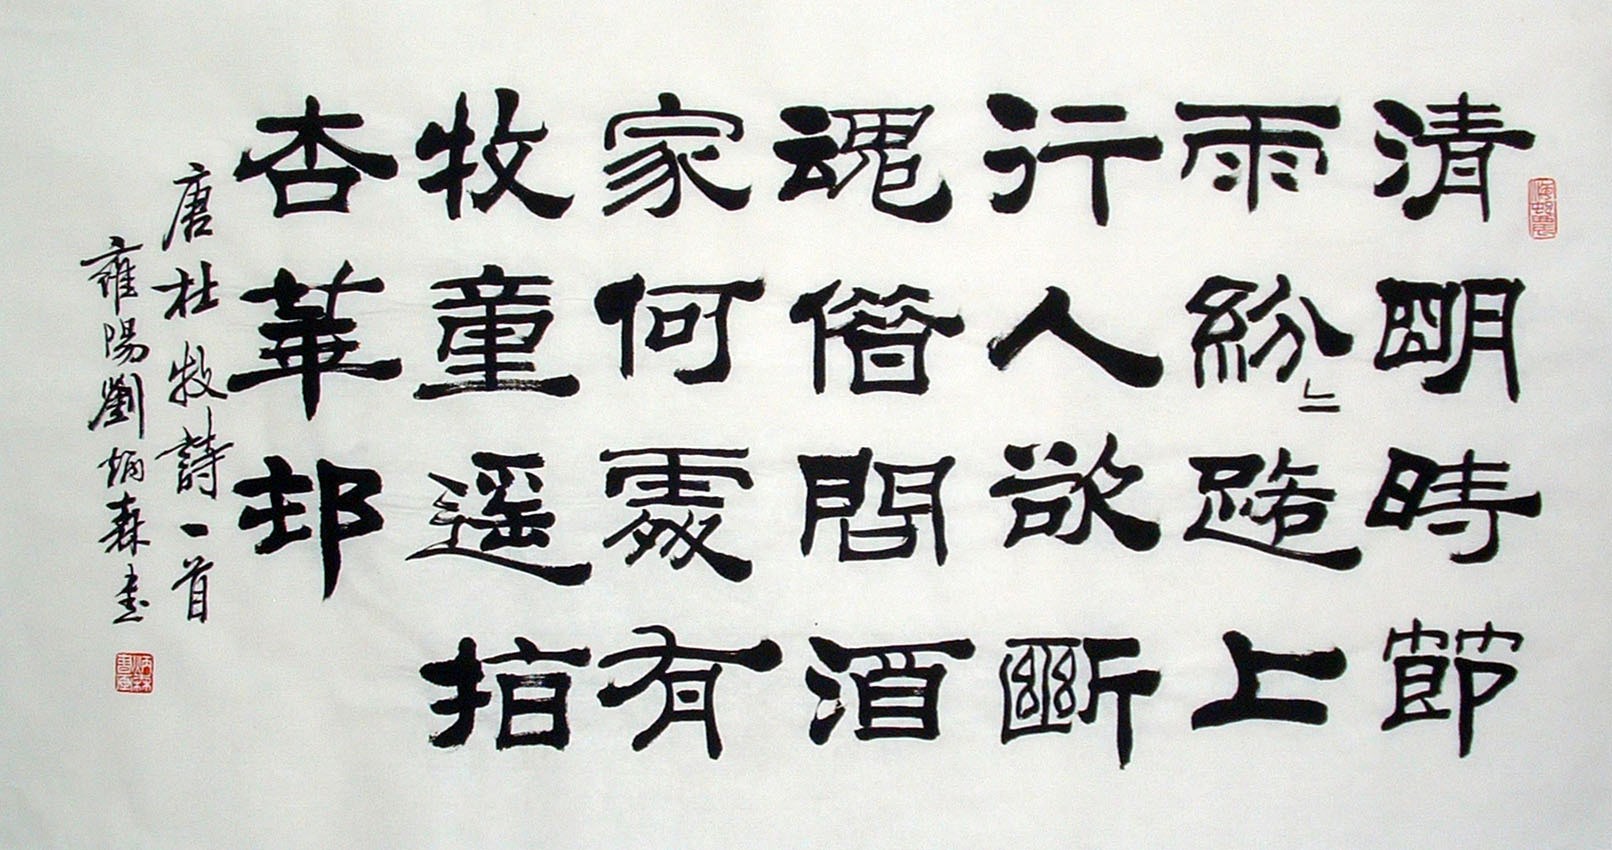 清明時節
雨紛〻路上
行人欲斷
魂借問酒
家何處有
牧童遥指
杏華邨
唐杜牧詩一首
雍陽劉炳森書
炳森書画